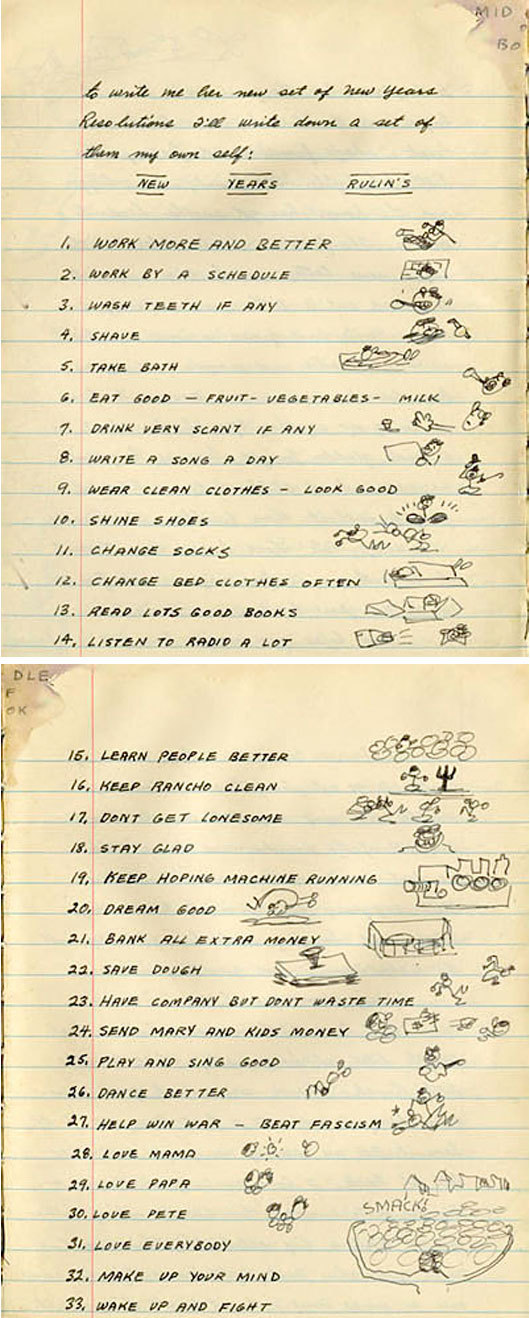 MID
BO
to write me her new set of New Years
Resolutions I'll write down a set of
them my own self:
NEW YEARS RULIN'S
1. WORK MORE AND BETTER
2. WORK BY A SCHEDULE
3. WASH TEETH IF ANY
4. SHAVE
5. TAKE BATH
6. EAT GOOD — FRUIT - VEGETABLES - MILK
7. DRINK VERY SCANT IF ANY
8. WRITE A SONG A DAY
9. WEAR CLEAN CLOTHES — LOOK GOOD
10. SHINE SHOES
11. CHANGE SOCKS
12. CHANGE BED CLOTHES OFTEN
13. READ LOTS GOOD BOOKS
14. LISTEN TO RADIO A LOT
DLE
F
OK
15. LEARN PEOPLE BETTER
16. KEEP RANCHO CLEAN
17. DONT GET LONESOME
18. STAY GLAD
19. KEEP HOPING MACHINE RUNNING
20. DREAM GOOD
21. BANK ALL EXTRA MONEY
22. SAVE DOUGH
23. HAVE COMPANY BUT DONT WASTE TIME
24. SEND MARY AND KIDS MONEY
25. PLAY AND SING GOOD
26. DANCE BETTER
27. HELP WIN WAR — BEAT FASCISM
28. LOVE MAMA
29. LOVE PAPA
30. LOVE PETE
SMACK!
31. LOVE EVERYBODY
32. MAKE UP YOUR MIND
33. WAKE UP AND FIGHT